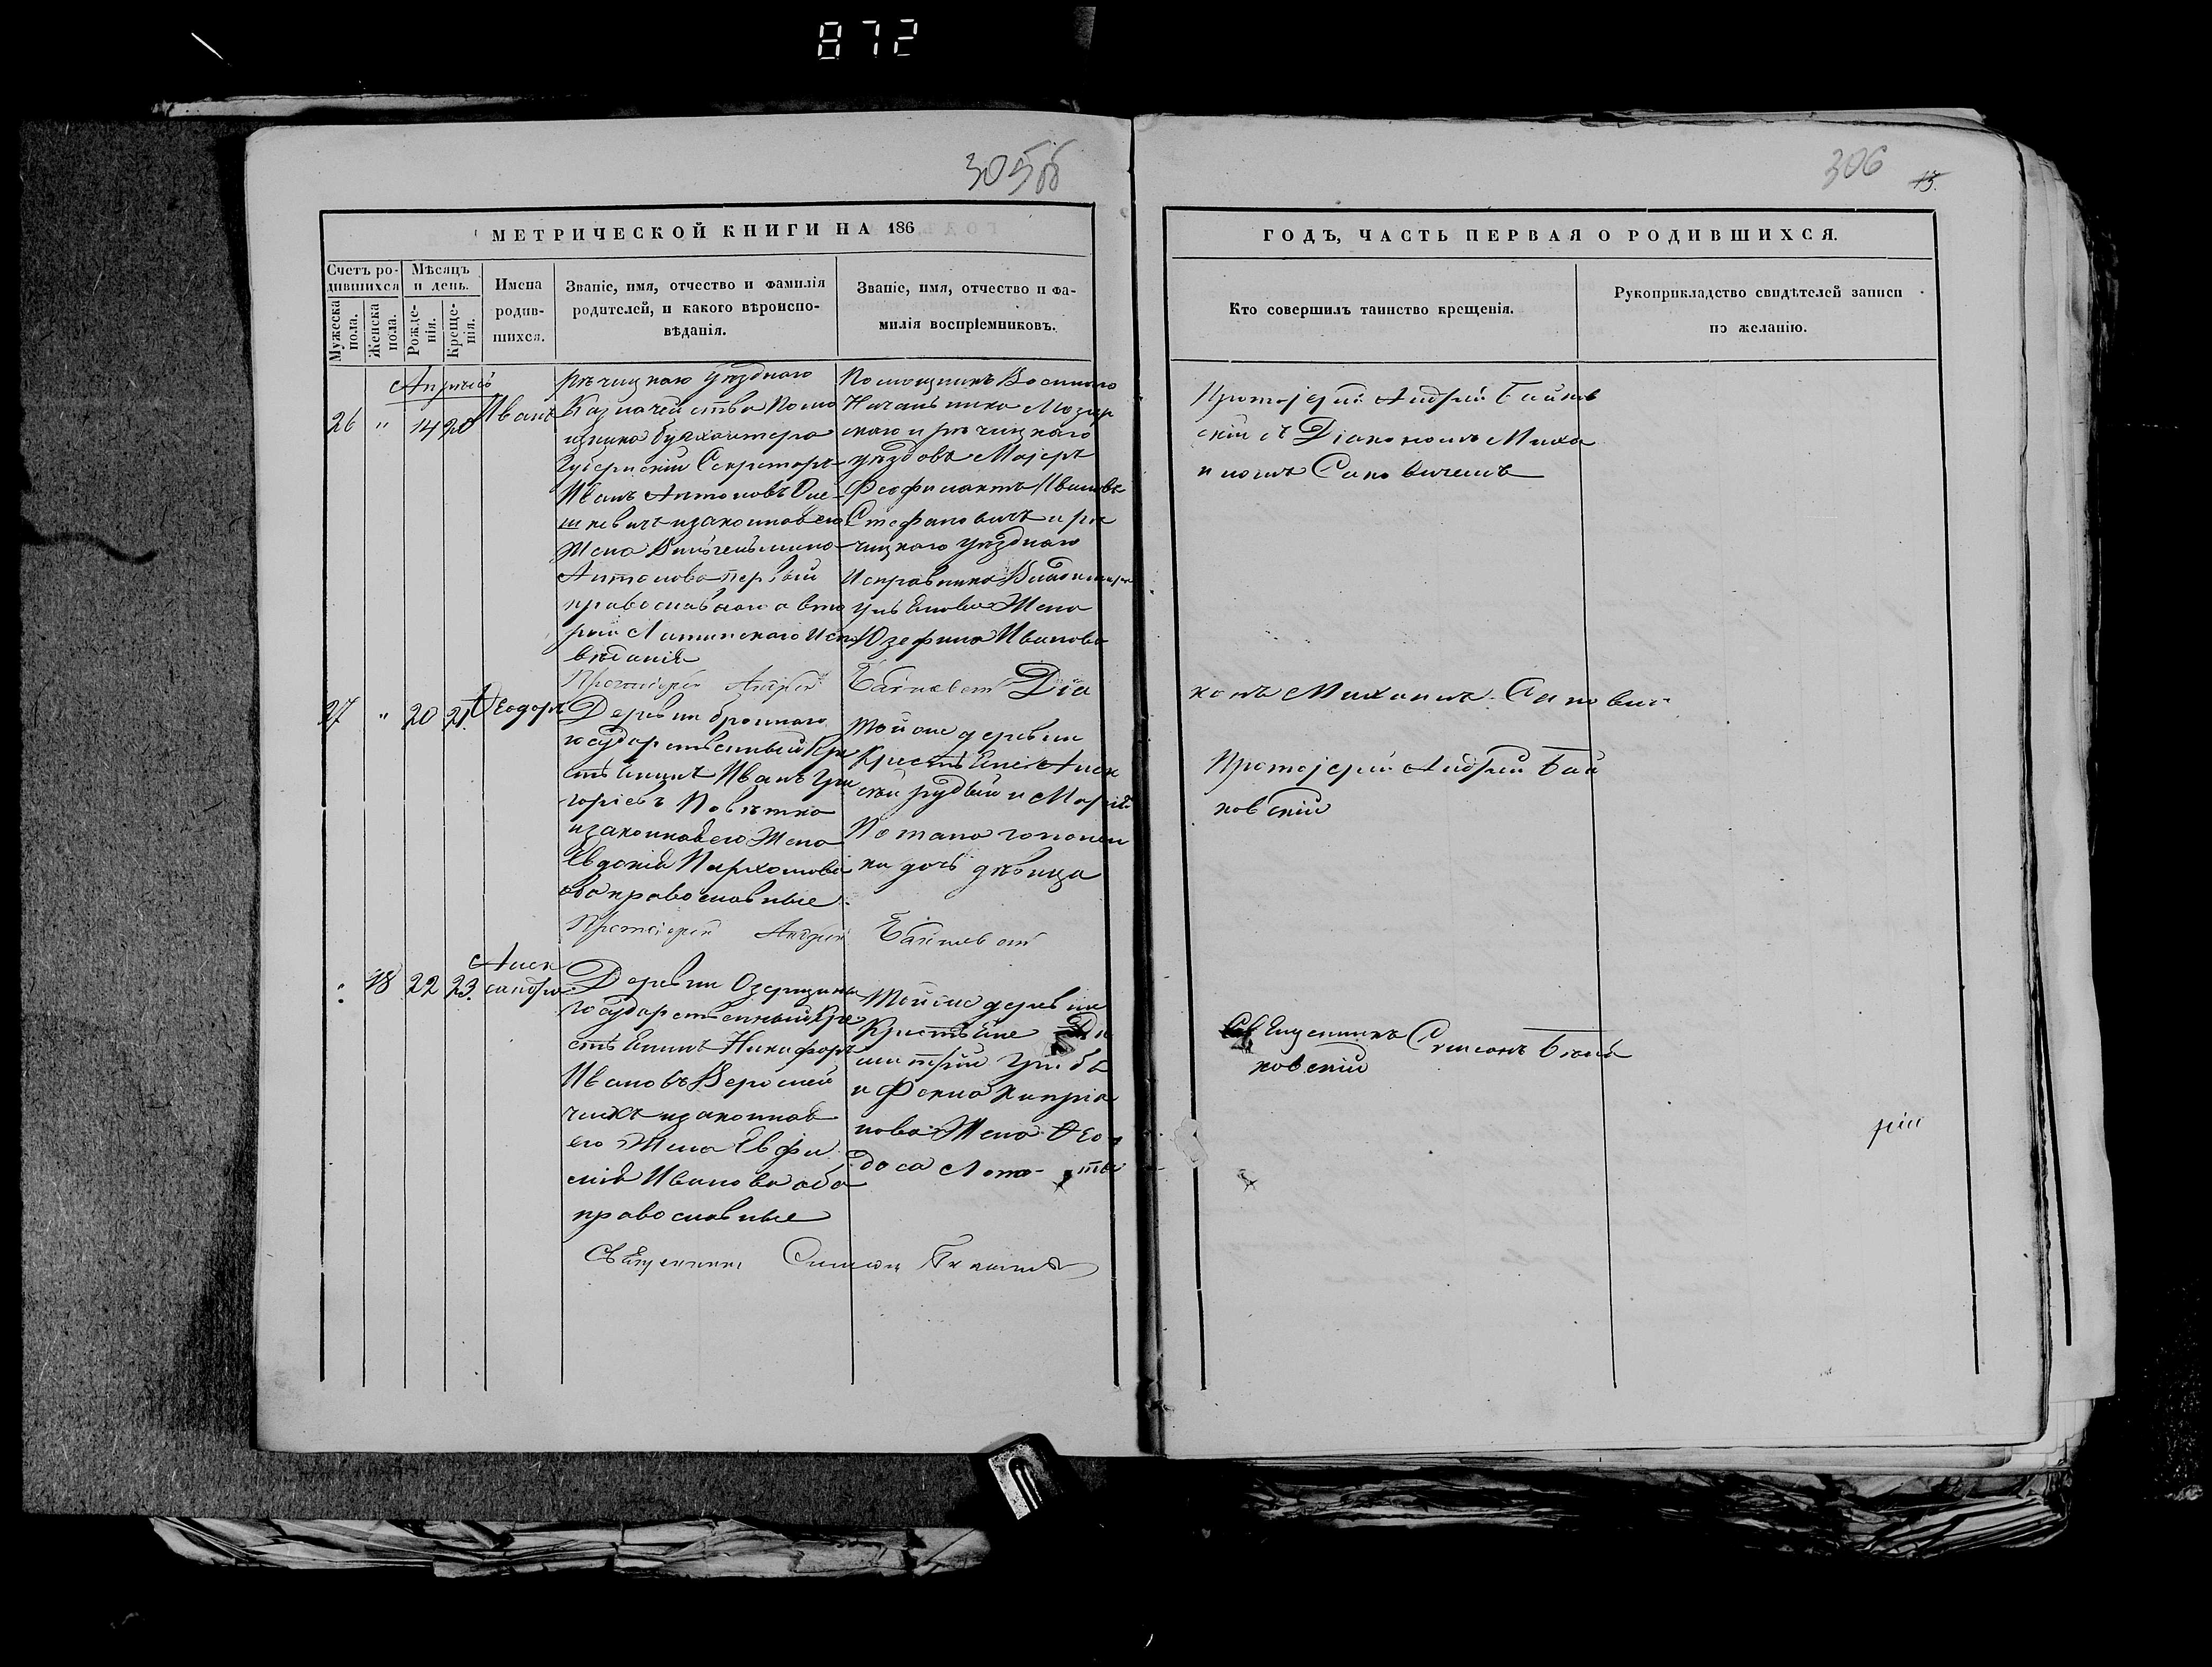 872
305об
306
13.
МЕТРИЧЕСКОЙ КНИГИ НА 186
ГОДЪ, ЧАСТЬ ПЕРВАЯ О РОДИВШИХСЯ.
Счетъ ро-
дившихся
Мужеска
пола.
Женска
пола.
Мѣсяцъ
и день.
Рожде-
нія.
Креще-
нія.
Имена
родив-
шихся.
Званіе, имя, отчество и фамилія
родителей, и какого вѣроиспо-
вѣданія.
Званіе, имя, отчество и фа-
милія воспріемниковъ.
Кто совершилъ таинство крещенія.
Рукоприкладство свидѣтелей записи
по желанію.
Апрѣль
26 " 14 20 Иванъ
рѣчицкаго уѣзднаго
Казначейства Помо
щника бухгалтера
Губернскій Секретарь
Иванъ Антоновъ
и законная его
Жена Вильгельмина
Антонова первый
православнаго а вто
рая Латинскаго Испо
вѣданія
Помощникъ Военнаго
Начальника Мозыр
скаго и рѣчицкаго
уѣздовъ Маіоръ
Феофилактъ Ивановъ
Стефановичъ и рѣ
чицкаго уѣзднаго
Исправника Владимира
Жена
Юзефина Иванова
Протоіерей Андрей Байков
скій съ Діакономъ Миха
иломъ Саковичемъ
Протоіерей Андрей Байковскій Діа
конъ Михаилъ Сакович
27 " 20 21. Ѳеодоръ
Деревни броннаго
государственный Кре
стьянинъ Иванъ Гри
горіевъ Повѣтка
и законная его Жена
Евдокія Пархомова
оба православные
Той же деревни
Крестьяне Алек
сѣй рудый и Марія
Потапа
ки дочь дѣвица
Протоіерей Андрей Бай
ковскій
Протоіерей Андрей Байковскій
" 18 22 23. Алек
сандра
Деревни Озерщины
государственный Кре
стьянинъ Никифоръ
Ивановъ Веремей
чикъ и законная
его Жена Евфи
мія Иванова оба
православные
Той же деревни
Крестьяне Ди
митрій
и Фекла Кипріа
нова Жена Ѳео
доса
Священникъ Симеонъ
ковскій
рій
Священникъ Симеонъ